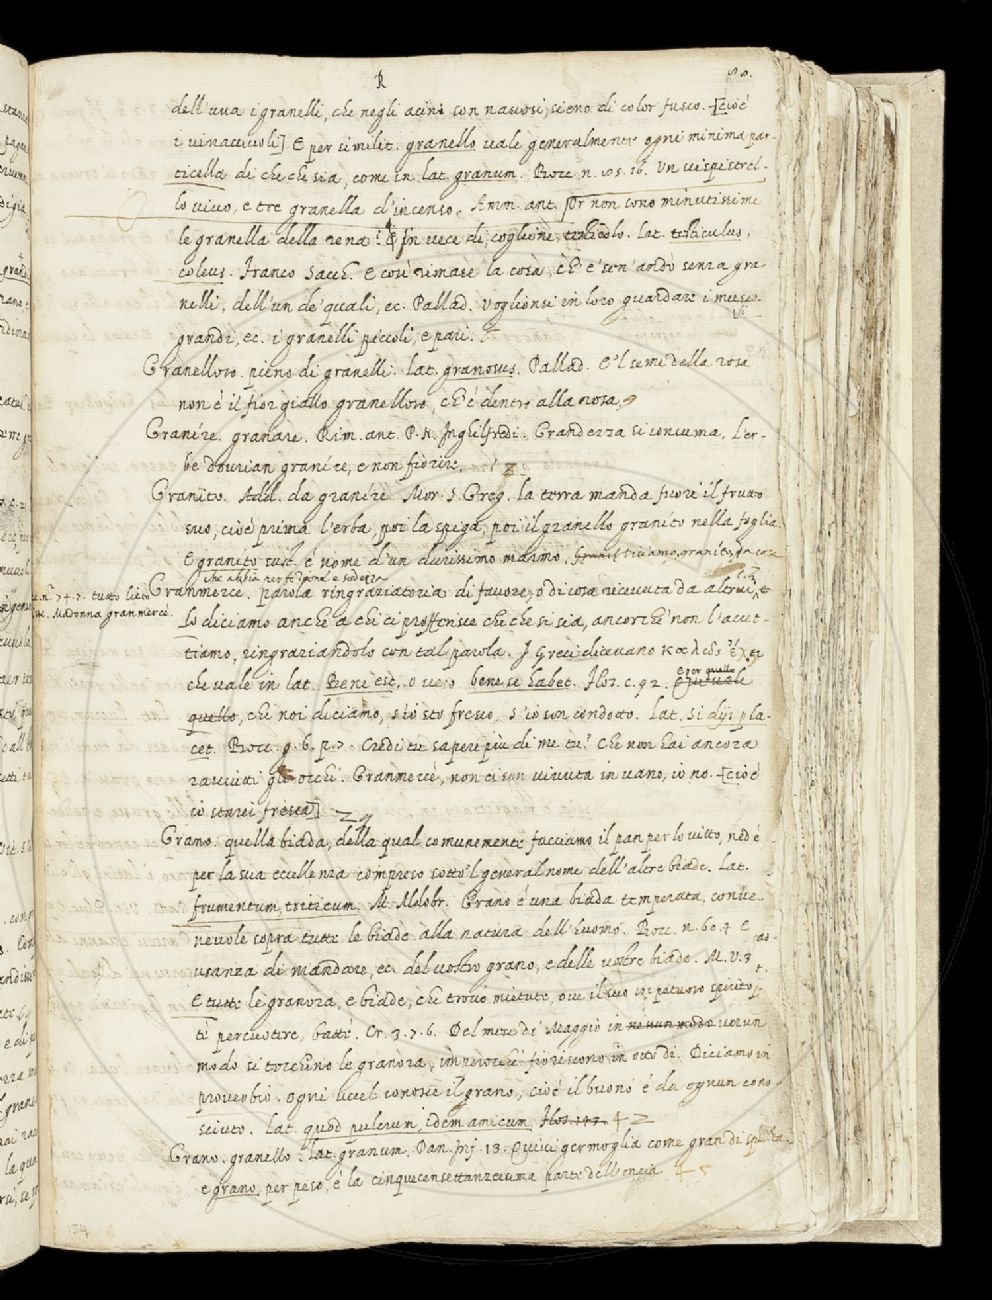 R
88.
dell'uva i granelli, che negli acini son nascosi, sieno di color fusco. [cioè
i vinacciuoli] E per similit. granello vale generalmente ogni minima par-
ticella di che che sia, come in lat. granum. Bocc. n. 105. 16. Un vispistrel-
lo vivo, e tre granella d'incenso. Amm. ant. Or non sono minutissime
le granella della rena? E In vece di coglione, testicolo. lat. testiculus,
coleus. Franco Sacch. E così rimase la cosa, ch'e' s'en'andò senza gra-
nelli, dell'un de' quali, ec. Pallad. Voglionsi in loro guardare i musco-
li
grandi, ec. i granelli piccoli, e pari.
Granelloso. pieno di granelli. lat. granosus. Pallad. E'l seme della rosa
non è il fior giallo granelloso, ch'è dentro alla rosa.
Granire. granare. Rim. ant. P. N. Inghilfredi. Grandezza si consuma. L'er-
be dovrian granire, e non fiorire.
Granito. Add. da granire. Mor. S. Greg. la terra manda fuore il frutto
suo, cioè prima l'erba, poi la spiga, poi il granello granito nella foglia
E granito sust. è nome d'un durissimo marmo. diciamo, granito, da cosa
che abbia perfezione e sodezza
Granmercè. parola ringraziatoria di favore, o di cosa ricevuta da altrui, e
n. 74. 7. tutto lieto
Madonna granmercè.
lo diciamo anche a chi ci profferisce che che si sia, ancorchè non l'accet-
tiamo, ringraziandolo con tal parola. I Greci dicevano καλῶς ἔχει
che vale in lat. Bene est, o vero bene se habet. Flos. c. 92.
e per quello
quello, che noi diciamo, s'io sto fresco, s'io son condotto. Lat. si dijs pla-
cet. Bocc. g. 6. p. 7. Credi tu sapere più di me tu? che non hai ancora
rasciutti gli occhi. Granmercè, non ci son vivuta in vano, io no. [cioè
io starei fresca]
Grano. quella biada, della qual comunemente facciamo il pan per lo vitto, ned è
per la sua eccellenza compreso sotto'l general nome dell'altre biade. Lat.
frumentum, triticum. M. Aldobr. Grano è una biada temperata, conve-
nevole sopra tutte le biade alla natura dell'huomo. Bocc. n. 60. 4 E
usanza di mandare, ec. del vostro grano, e delle vostre biade. M. V. 3
E tutte le granora, e biade, che trovò mietute, ove il suo impetuoso spirito
ti percuotere, battè. Cr. 3. 7. 6. Del mese di Maggio in ne nun modo verun
modo si tocchino le granora, imperocchè fioriscono in otto dì. Diciamo in
proverbio. ogni uccel conosce il grano, cioè il buono è da ognun cono-
sciuto. lat. quod pulcrum, idem amicum Flos. 143.
Grano. granello. lat. granum. Dan. Inf. 13. Quivi germoglia come gran di spelta.
e grano, per peso, è la cinquecensettanzeiuma parte dell'oncia
134